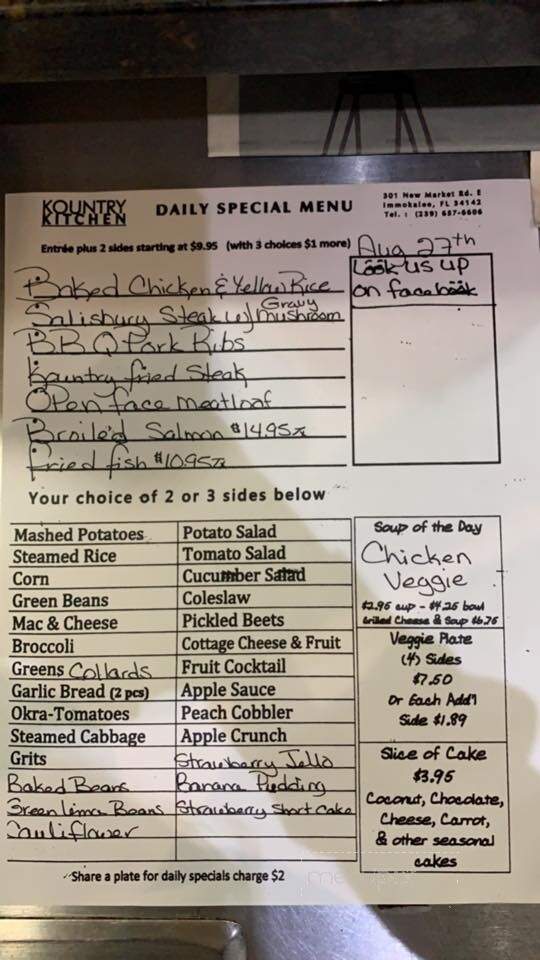 KOUNTRY
KITCHEN
DAILY SPECIAL MENU
301 New Market Rd. E
Immokalee, FL 34142
Tel. : (239) 657-6606
Entrée plus 2 sides starting at $9.95 (with 3 choices $1 more)
Aug 27th
Baked Chicken & Yellow Rice
Salisbury Steak w/ Mushroom Gravy
BBQ Pork Ribs
Kountry fried Steak
Open face meatloaf
Broiled Salmon $14.95
Fried fish $10.95
Look us up
on facebook
Your choice of 2 or 3 sides below
Mashed Potatoes
Steamed Rice
Corn
Green Beans
Mac & Cheese
Broccoli
Greens Collards
Garlic Bread (2 pcs)
Okra-Tomatoes
Steamed Cabbage
Grits
Baked Beans
Green Lima Beans
Cauliflower
Potato Salad
Tomato Salad
Cucumber Salad
Coleslaw
Pickled Beets
Cottage Cheese & Fruit
Fruit Cocktail
Apple Sauce
Peach Cobbler
Apple Crunch
Strawberry Jello
Banana Pudding
Strawberry Short Cake
Soup of the Day
Chicken
Veggie
$2.95 cup - $4.25 bowl
Grilled Cheese & Soup $6.75
Veggie Plate
(4) Sides
$7.50
Or Each Add'l
Side $1.89
Slice of Cake
$3.95
Coconut, Chocolate,
Cheese, Carrot,
& other seasonal
cakes
Share a plate for daily specials charge $2